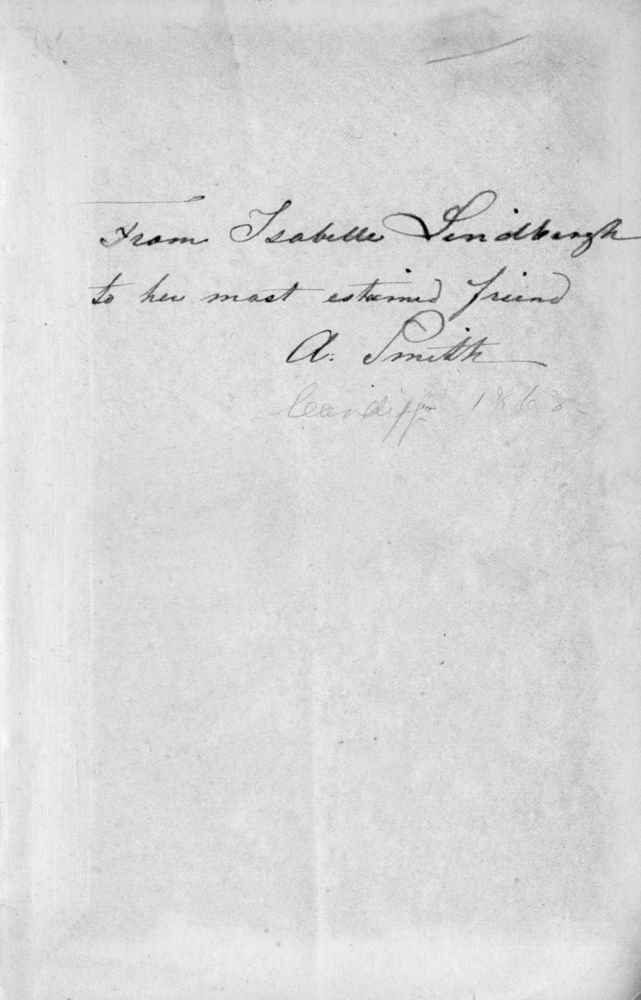 From Isabelle Lindbergh
to her most estemed friend
A. Smith
Cardiff 1868